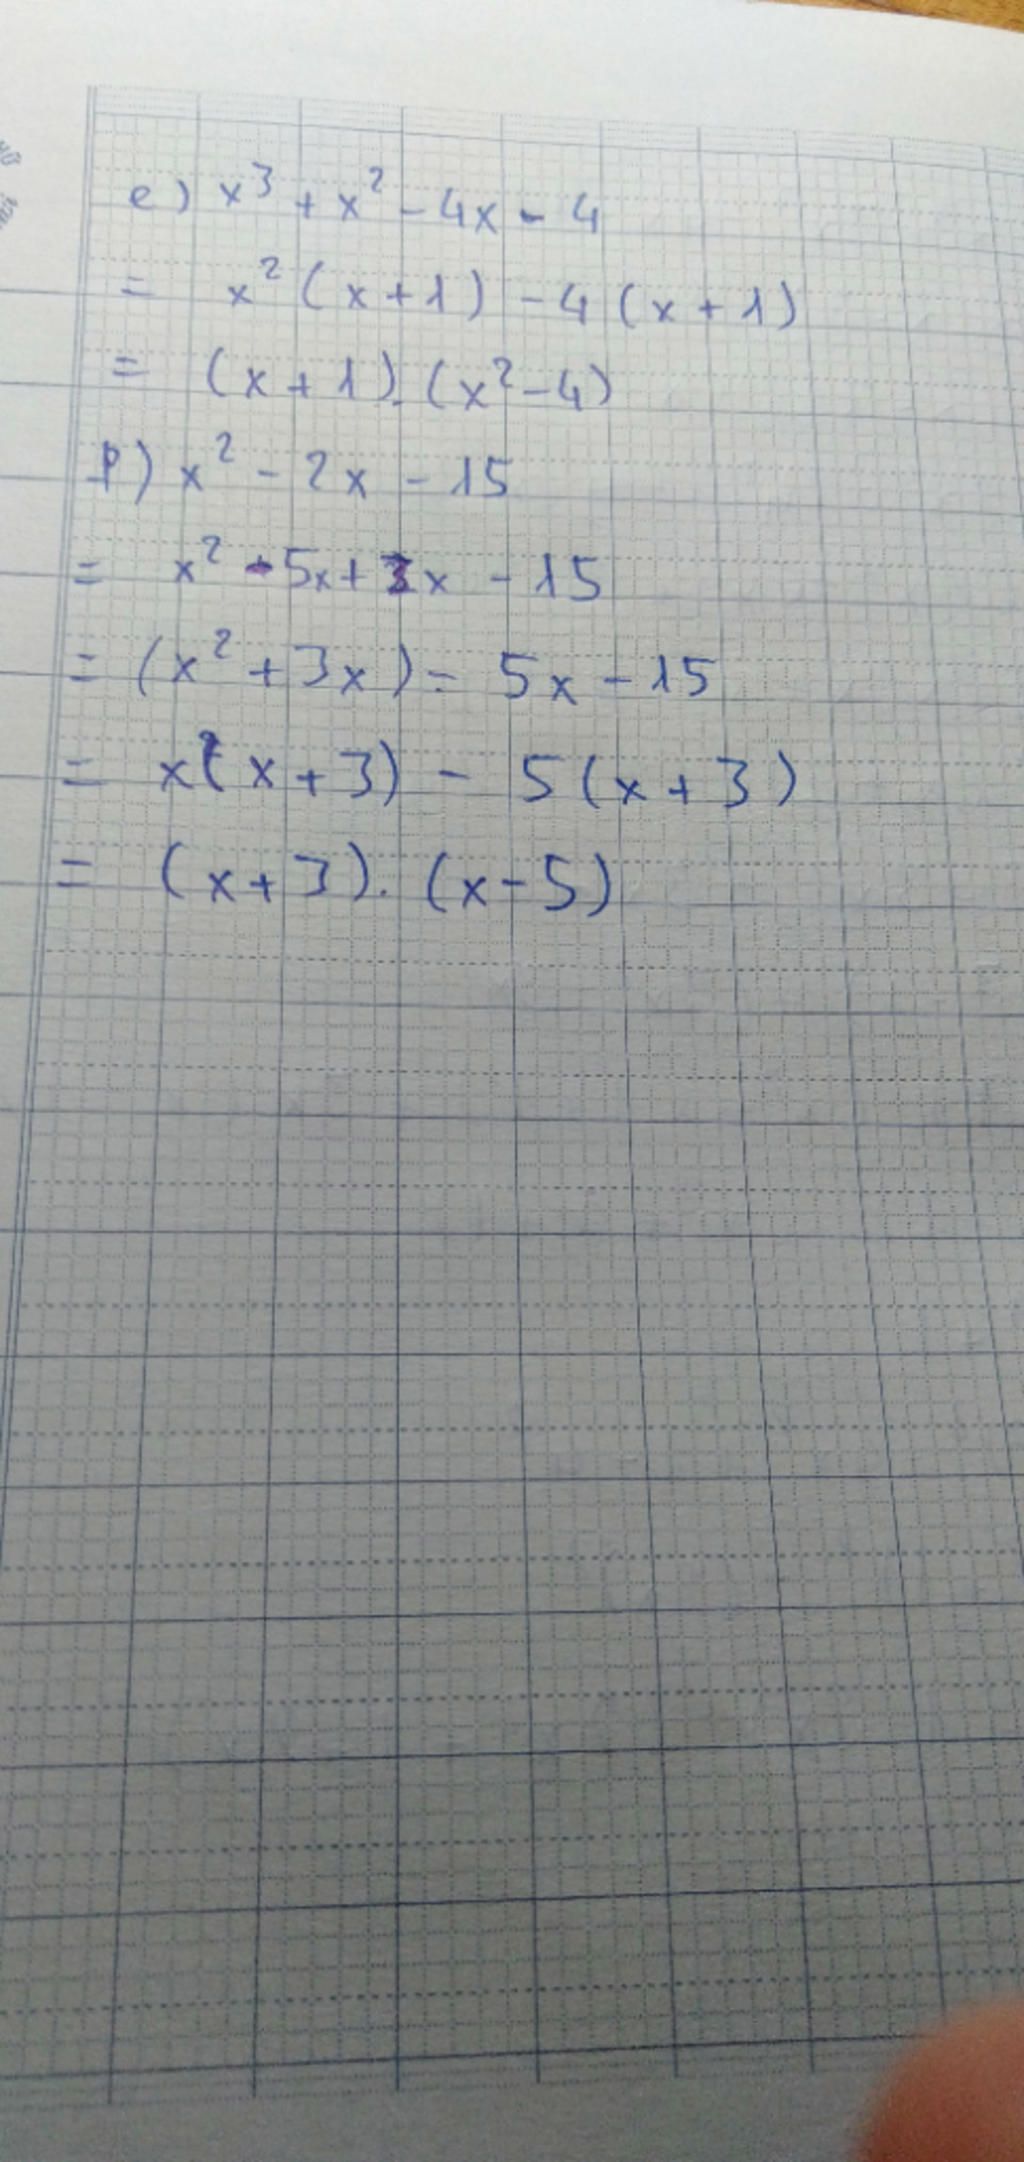 e) x³ + x² - 4x - 4
= x² (x + 1) - 4 (x + 1)
= (x + 1) . (x² - 4)
f) x² - 2x - 15
= x² - 5x + 3x - 15
= (x² + 3x) - 5x - 15
= x (x + 3) - 5 (x + 3)
= (x + 3) . (x - 5)